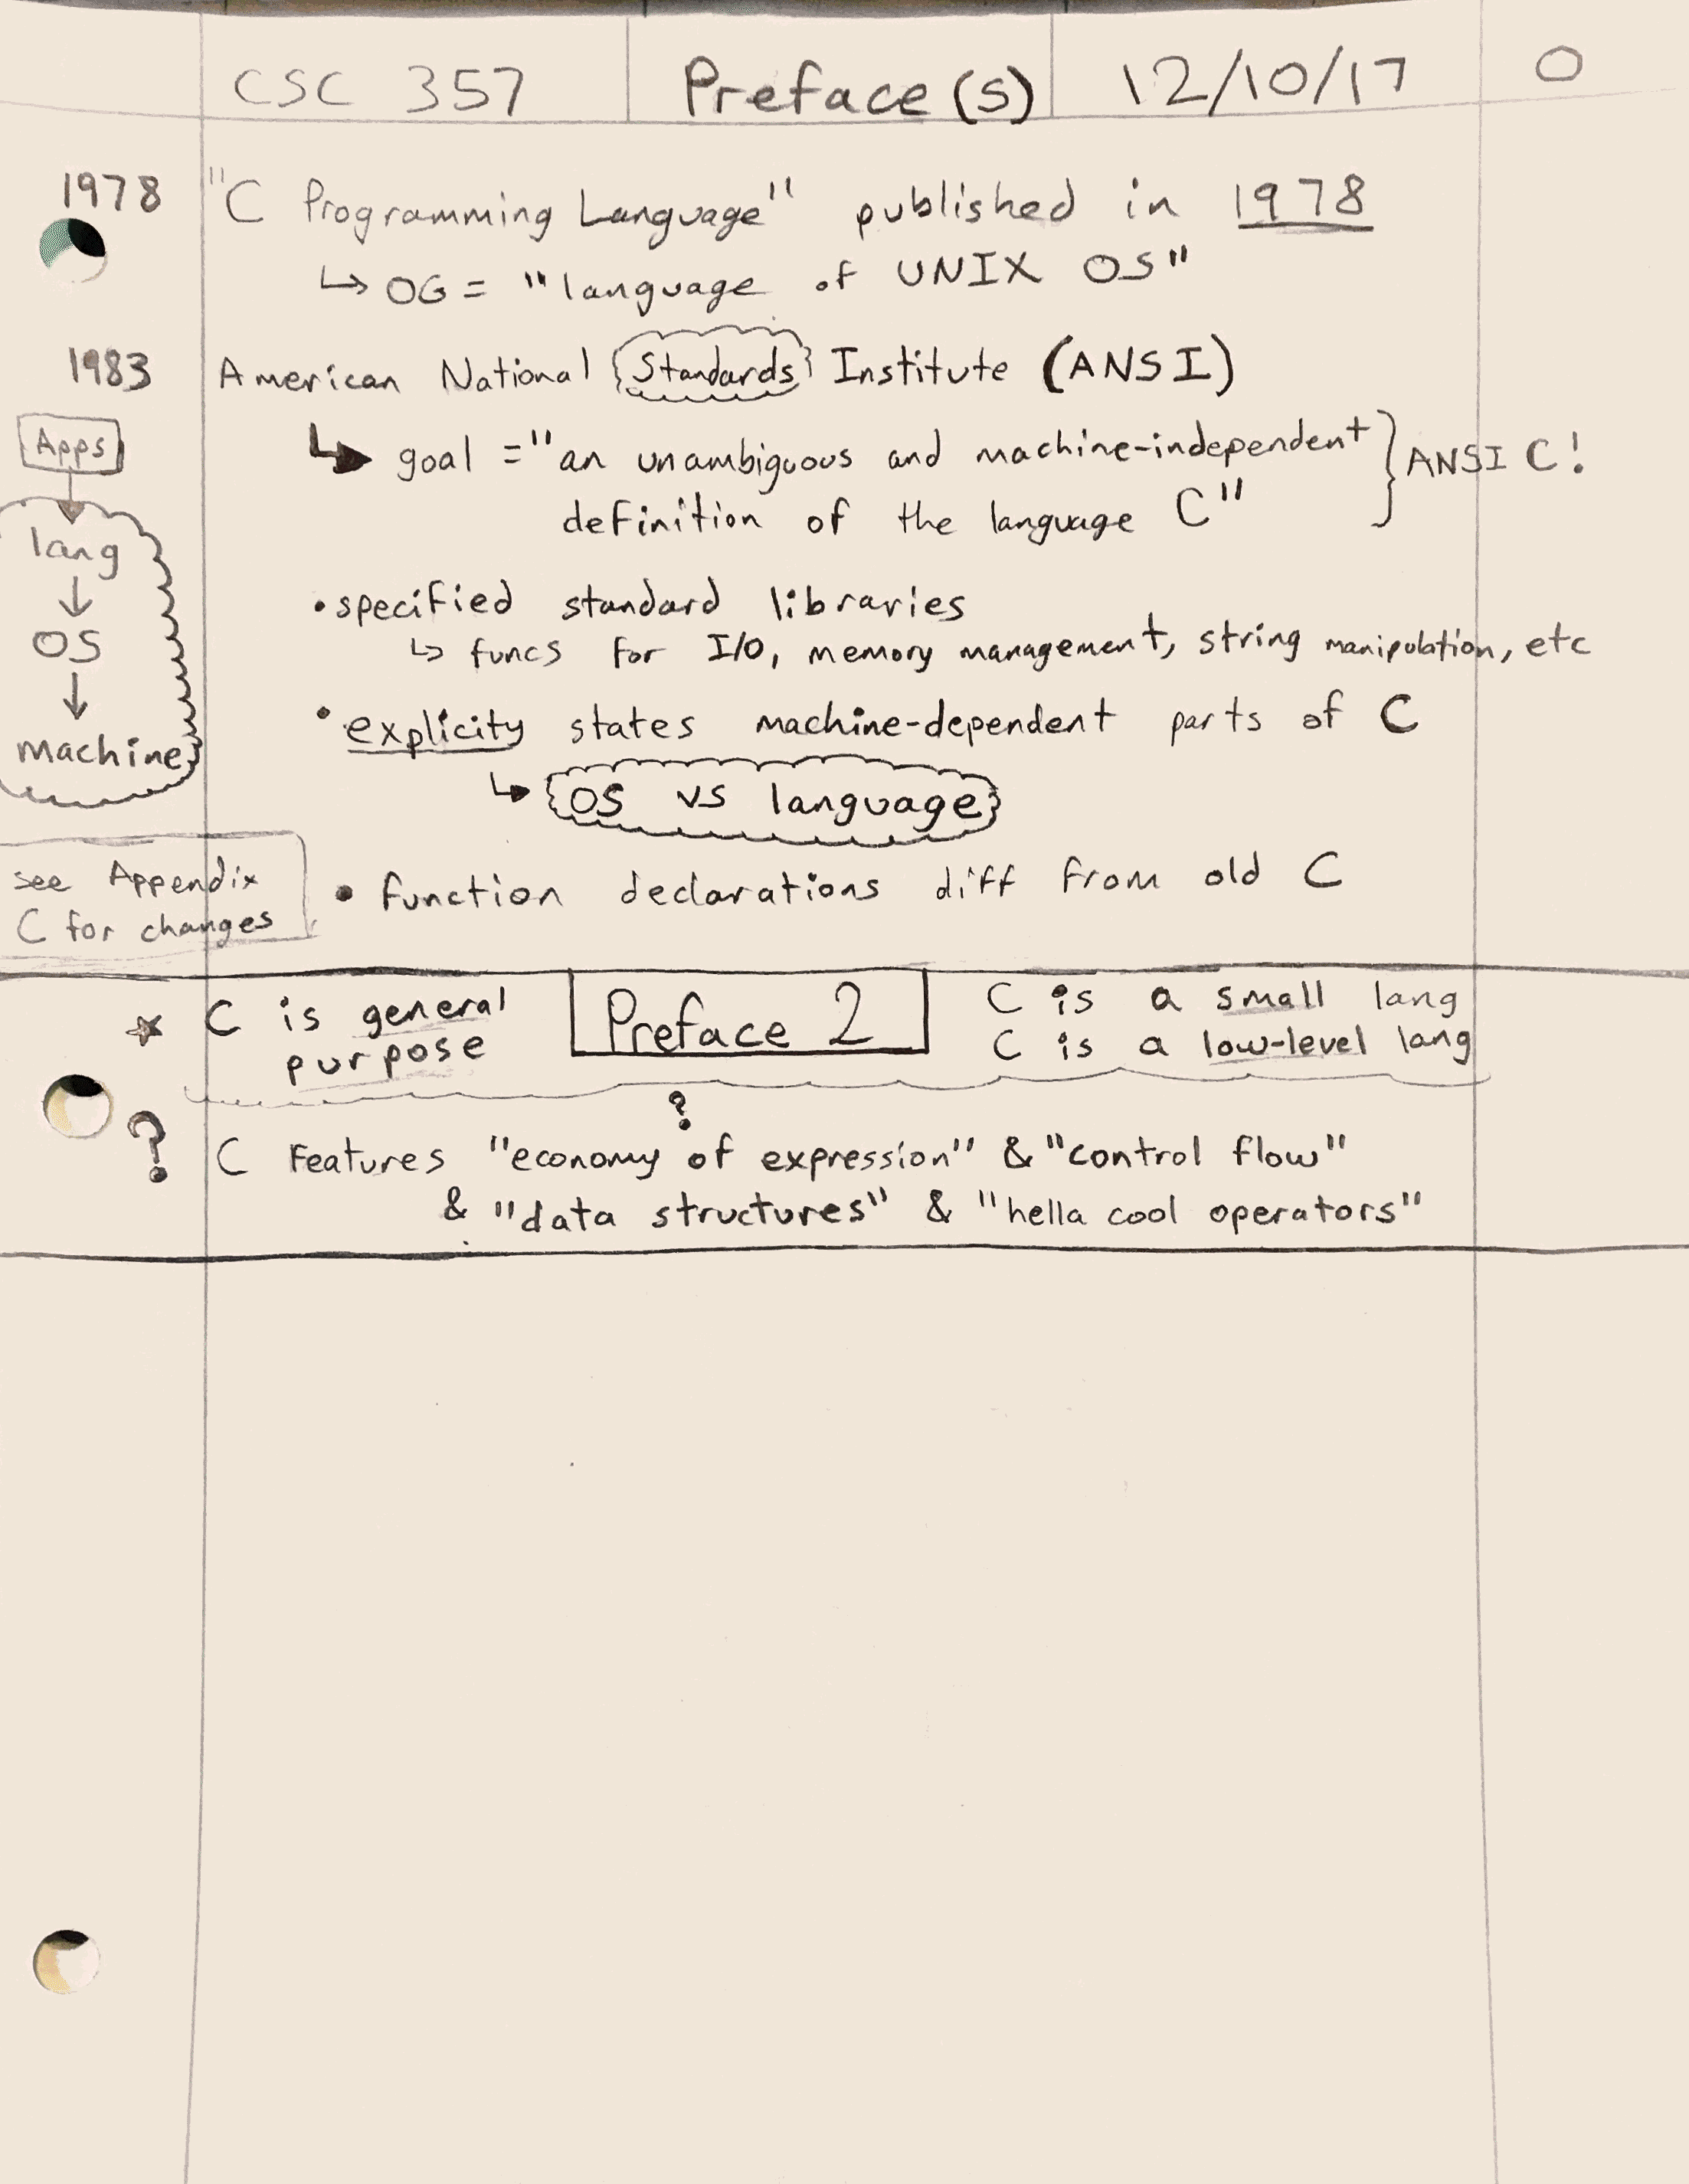 CSC 357 Preface(s) 12/10/17 0
1978 "C Programming Language" published in 1978
↳ OG = "language of UNIX OS"
1983 American National Standards Institute (ANSI)
↳ goal = "an unambiguous and machine-independent } ANSI C!
definition of the language C"
Apps
lang
↓
OS
↓
machine
• specified standard libraries
↳ funcs for I/O, memory management, string manipulation, etc
• explicity states machine-dependent parts of C
↳ OS vs language
see Appendix
C for changes
• function declarations diff from old C
☆ C is general
purpose
Preface 2
C is a small lang
C is a low-level lang
?
? C Features "economy of expression" & "control flow"
& "data structures" & "hella cool operators"